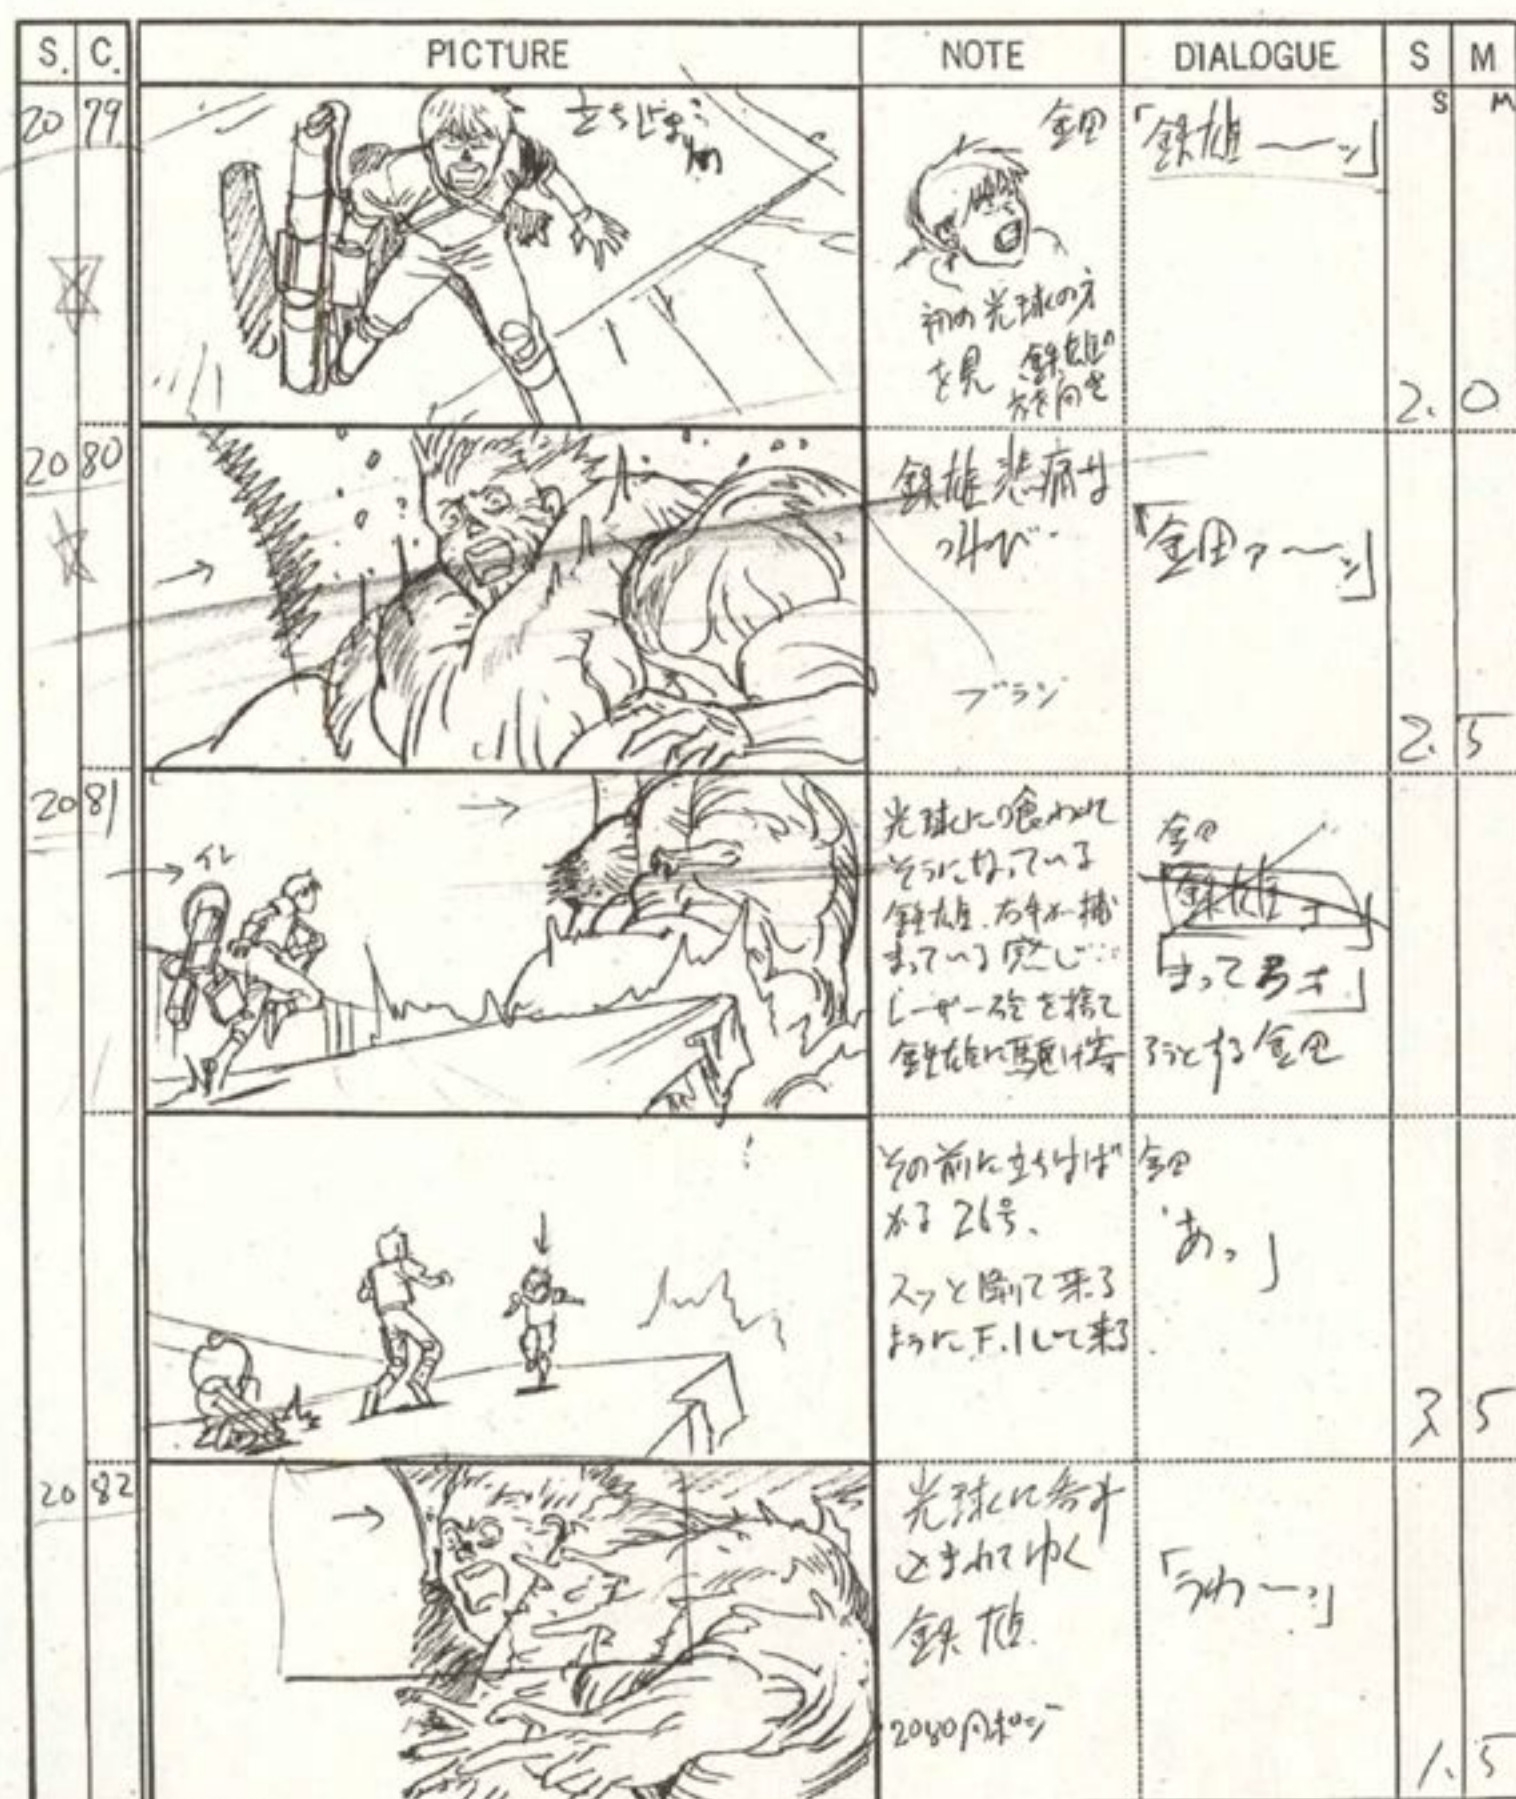 S. C. PICTURE NOTE DIALOGUE S M
S M
20 79
立ち止まり
金田
「鉄雄――ッ」
初め光球の方
を見 鉄雄の
方を向く
2. 0
20 80
鉄雄悲痛な
叫び…
「金田ァ〜ッ」
ブラシ
2. 5
20 81
光球に喰われ
そうになっている
鉄雄、右手が捕
まっている感じ…
レーザー砲を捨て
鉄雄に駆け寄
金田
鉄雄
「まってろォ」
ろうとする金田
その前に立ちはば
かる26号、
スッと降りて来る
ようにF.Iして来る
金田
「あっ」
3. 5
20 82
光球に呑み
込まれてゆく
鉄雄
2080同ポジ
「うわーっ」
1. 5